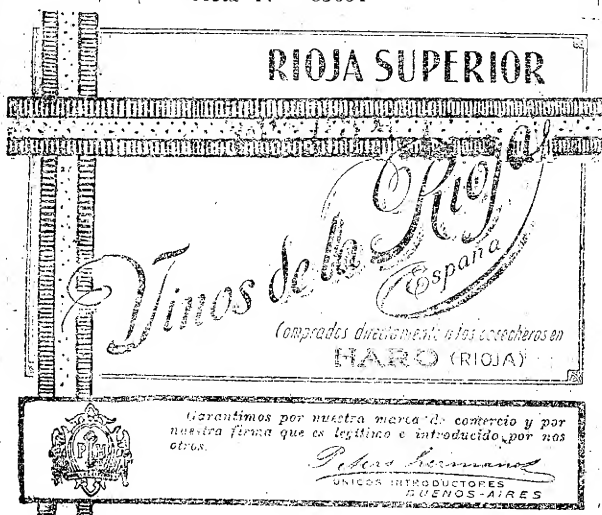 RIOJA SUPERIOR
Vinos de la Rioja
España
Comprados directamente a los cosecheros en
HARO (RIOJA)
Garantimos por nuestra marca de comercio y por
nuestra firma que es legitimo e introducido por nos
otros.
Peters Hermanos
UNICOS INTRODUCTORES
BUENOS-AIRES
PH